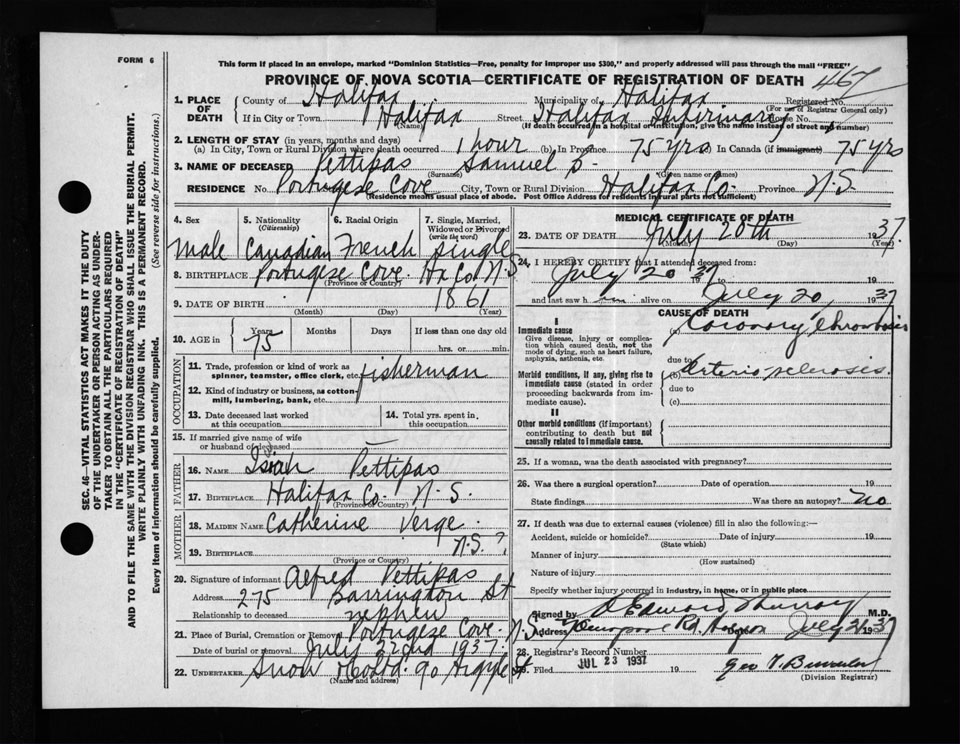 FORM 6
This form if placed in an envelope, marked "Dominion Statistics—Free, penalty for improper use $300," and properly addressed will pass through the mail "FREE"
PROVINCE OF NOVA SCOTIA—CERTIFICATE OF REGISTRATION OF DEATH
467
1. PLACE OF DEATH
County of Halifax Municipality of Halifax Registered No.
(For use of Registrar General only)
If in City or Town Halifax Street Halifax Infirmary House No.
(Name) (If death occurred in a hospital or institution, give the name instead of street and number)
2. LENGTH OF STAY (in years, months and days)
(a) In City, Town or Rural Division where death occurred 1 hour (b) In Province 75 yrs In Canada (if immigrant) 75 yrs
3. NAME OF DECEASED Pettipas Samuel
(Surname) (Given name or names)
RESIDENCE No. Portugese Cove City, Town or Rural Division Halifax Co. Province N.S.
(Residence means usual place of abode. Post Office Address for residents in rural parts not sufficient)
4. Sex Male
5. Nationality (Citizenship) Canadian
6. Racial Origin French
7. Single, Married, Widowed or Divorced (write the word) Single
8. BIRTHPLACE Portugese Cove. Hx Co. N.S.
(Province or Country)
9. DATE OF BIRTH 1861
(Month) (Day) (Year)
10. AGE in Years Months Days If less than one day old
75 hrs. or min.
OCCUPATION
11. Trade, profession or kind of work as spinner, teamster, office clerk, etc. fisherman
12. Kind of industry or business, as cotton mill, lumbering, bank, etc.
13. Date deceased last worked at this occupation
14. Total yrs. spent in this occupation
15. If married give name of wife or husband of deceased —
FATHER
16. NAME Isiah Pettipas
17. BIRTHPLACE Halifax Co. N.S.
(Province or Country)
MOTHER
18. MAIDEN NAME Catherine Verge
19. BIRTHPLACE N.S.?
(Province or Country)
20. Signature of informant Alfred Pettipas
Address 275 Barrington St
Relationship to deceased nephew
21. Place of Burial, Cremation or Removal Portugese Cove. N.S.
Date of burial or removal July 22nd 1937.
22. UNDERTAKER Snow & Co Ltd. 90 Argyle St
(Name and address)
MEDICAL CERTIFICATE OF DEATH
23. DATE OF DEATH July 20th 1937.
(Month) (Day) (Year)
24. I HEREBY CERTIFY that I attended deceased from
July 20 1937 to 19
and last saw him alive on July 20, 1937
CAUSE OF DEATH
I
Immediate cause
Give disease, injury or complication which caused death, not the mode of dying, such as heart failure, asphyxia, asthenia, etc.
(a) Coronary thrombosis
due to
Morbid conditions, if any, giving rise to immediate cause (stated in order proceeding backwards from immediate cause).
(b) Arterio sclerosis.
due to
(c)
II
Other morbid conditions (if important) contributing to death but not causally related to immediate cause.
25. If a woman, was the death associated with pregnancy?
26. Was there a surgical operation? Date of operation 19
State findings Was there an autopsy? no
27. If death was due to external causes (violence) fill in also the following:—
Accident, suicide or homicide? Date of injury 19
(State which)
Manner of injury
(How sustained)
Nature of injury
Specify whether injury occurred in industry, in home, or in public place
Signed by Edward Murray M.D.
Address July 21 1937
28. Registrar's Record Number
Filed JUL 23 1937 19
(Division Registrar)
SEC. 46—VITAL STATISTICS ACT MAKES IT THE DUTY
OF THE UNDERTAKER OR PERSON ACTING AS UNDER-
TAKER TO OBTAIN ALL THE PARTICULARS REQUIRED
IN THE "CERTIFICATE OF REGISTRATION OF DEATH"
AND TO FILE THE SAME WITH THE DIVISION REGISTRAR WHO SHALL ISSUE THE BURIAL PERMIT.
WRITE PLAINLY WITH UNFADING INK. THIS IS A PERMANENT RECORD.
Every item of information should be carefully supplied. (See reverse side for instructions.)